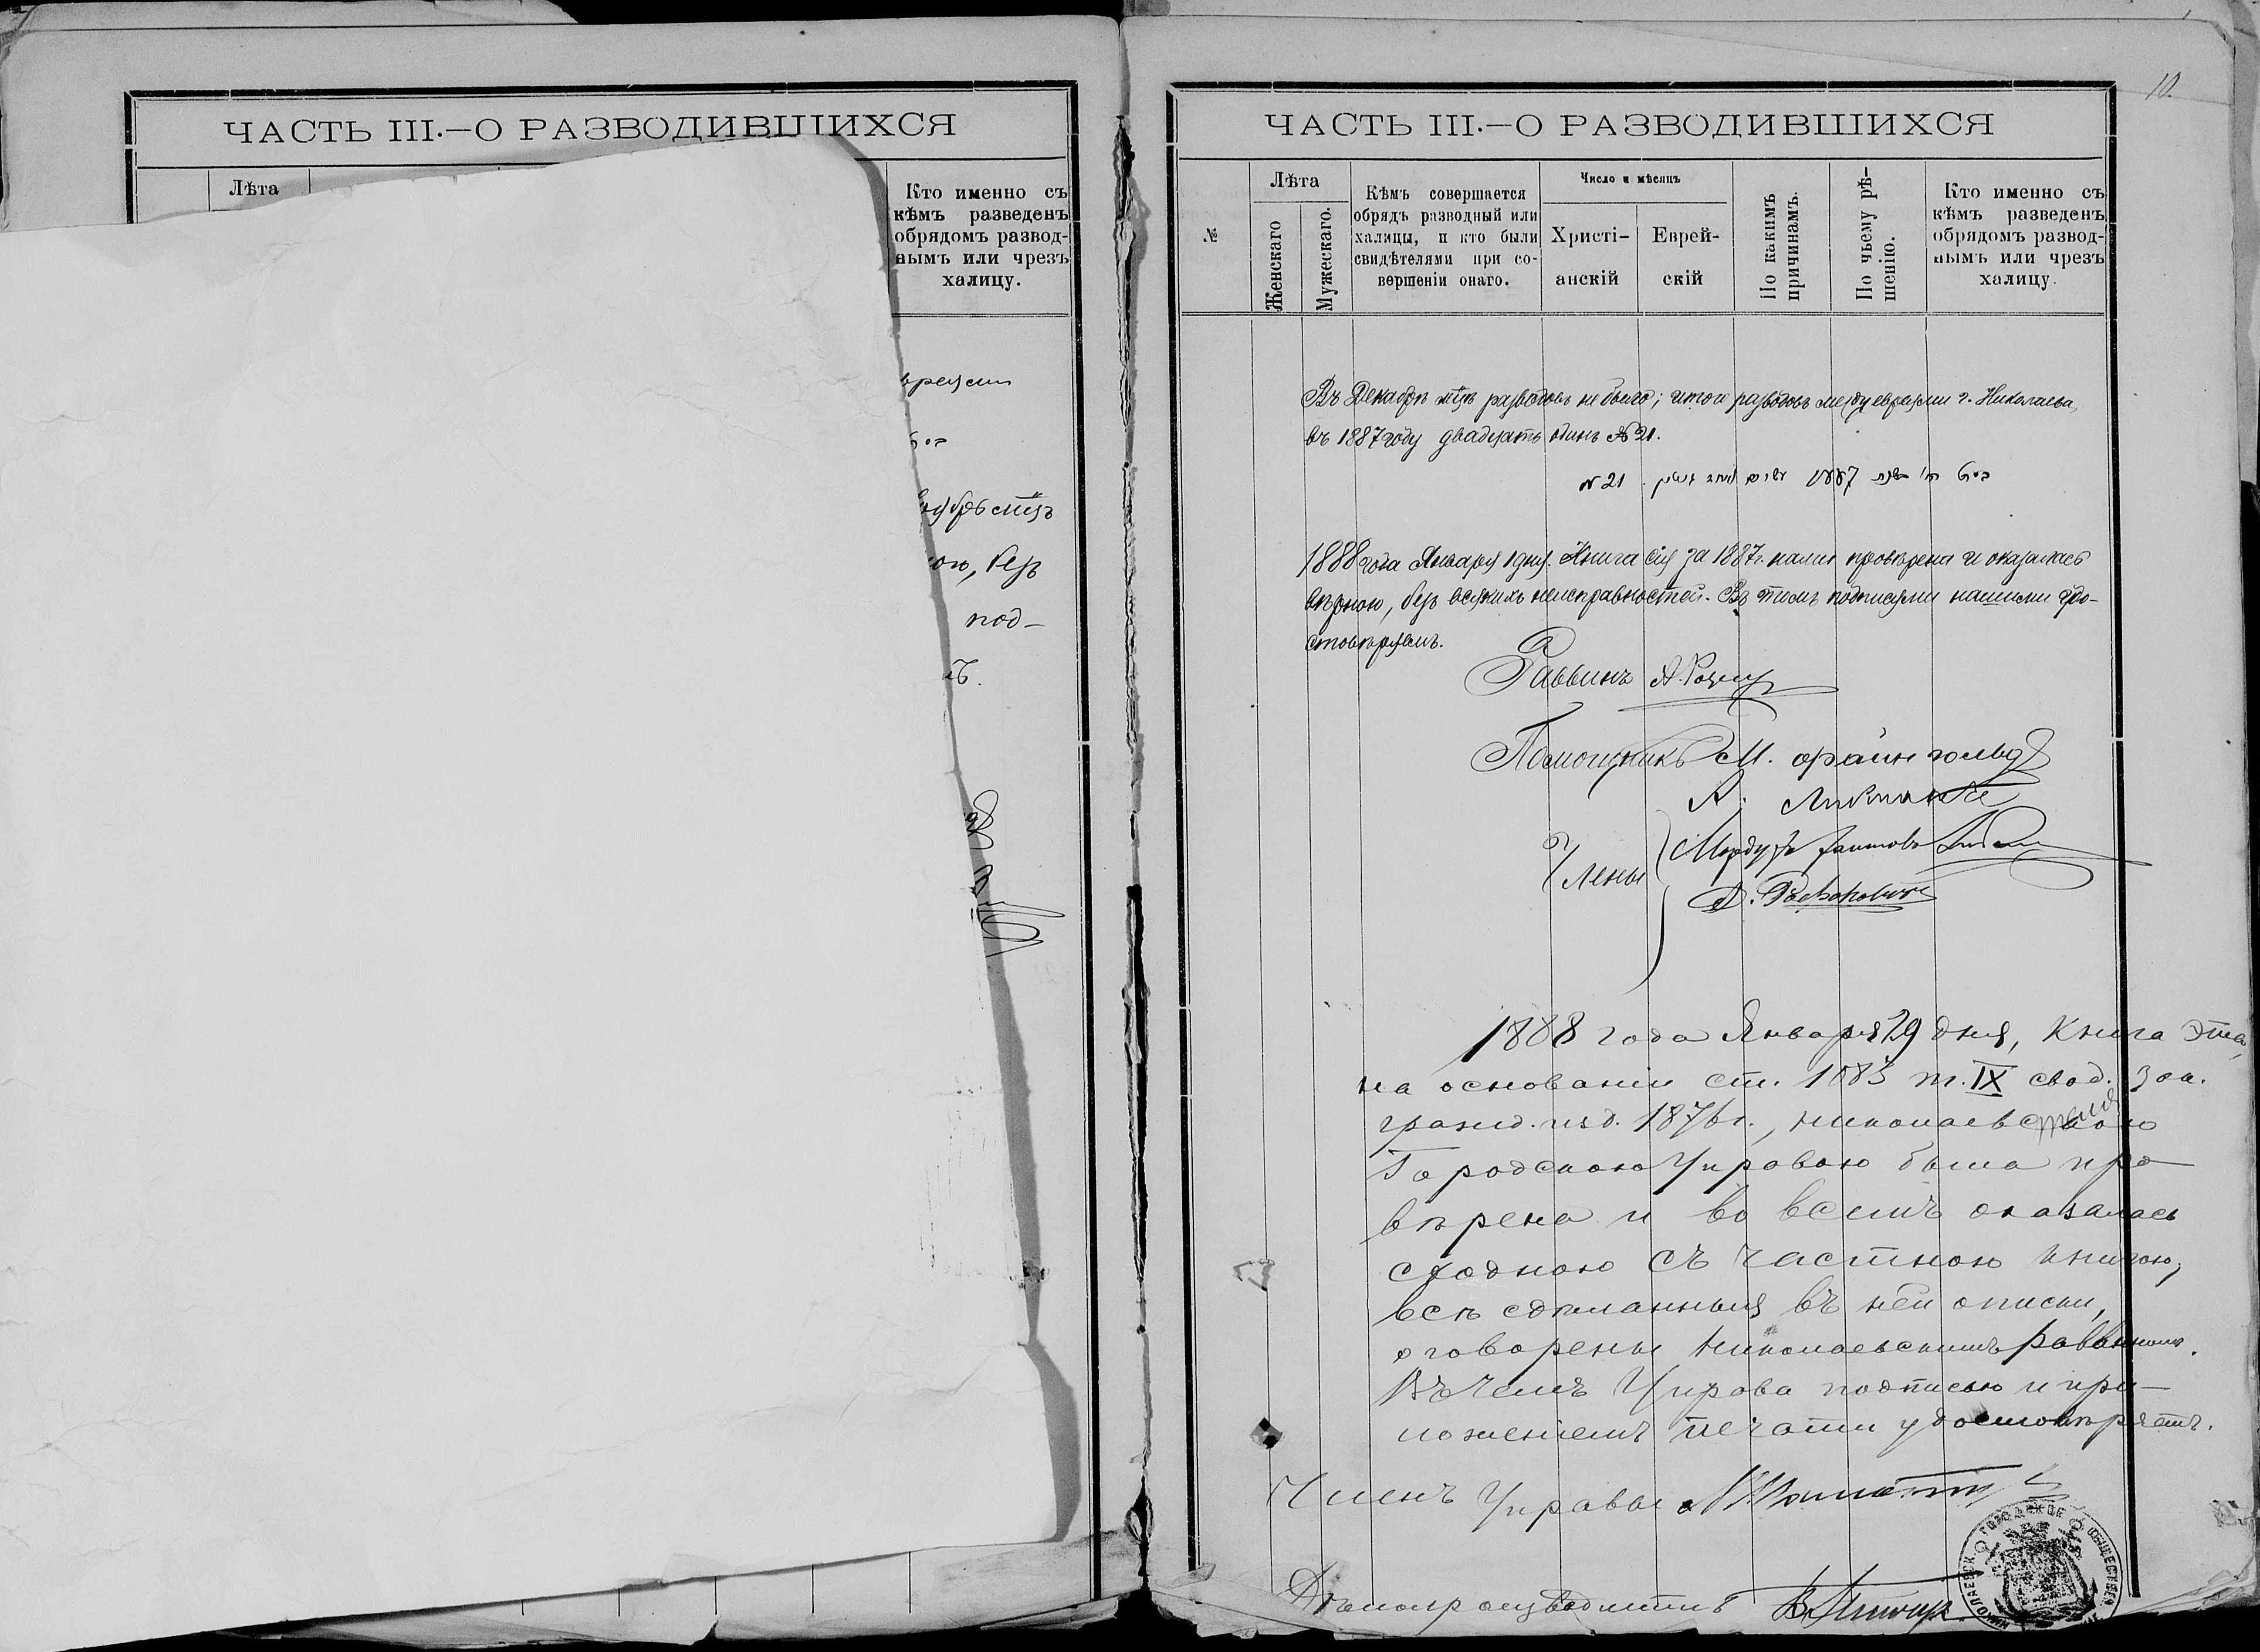 ЧАСТЬ III.—О РАЗВОДИВШИХСЯ
Лѣта
Кто именно съ
кѣмъ разведенъ
обрядомъ развод-
нымъ или чрезъ
халицу.
под-
10.
ЧАСТЬ III.—О РАЗВОДИВШИХСЯ
№
Лѣта
Женскаго
Мужескаго.
Кѣмъ совершается
обрядъ разводный или
халицы, и кто были
свидѣтелями при со-
вершеніи онаго.
Число и мѣсяцъ
Христі-
анскій
Еврей-
скій
По какимъ
причинамъ.
По чьему рѣ-
шенію.
Кто именно съ
кѣмъ разведенъ
обрядомъ развод-
нымъ или чрезъ
халицу.
Въ Декабрѣ мѣцѣ разводовъ не было; итого разводовъ между евреями г. Николаева
въ 1887 году двадцать одинъ № 21.
1887 № 21
1888 года Января 1 дня. Книга сія за 1887 г. нами провѣрена и оказалась
вѣрною, безъ всякихъ неисправностей. Въ томъ подписями нашими удо-
стовѣряемъ.
Раввинъ А.
Помощникъ М. Файнгольд
А.
Члены
Мордухъ
1888 года Января 29 дня, Книга эта,
на основаніи ст. 1083 т. IX свод. зак.
гражд. изд. 1876 г., Николаевскою
Городскою Управою была про-
вѣрена и во всемъ оказалась
сходною съ частною книгою;
всѣ сдѣланныя въ ней описки,
оговорены Николаевскимъ раввиномъ.
Въ чемъ Управа подписью и при-
ложеніемъ печати удостовѣряетъ.
Членъ Управы
Дѣлопроизводитель В.
НИКОЛАЕВСК. ГОРОДСКОЕ ОБЩЕСТВЕН.